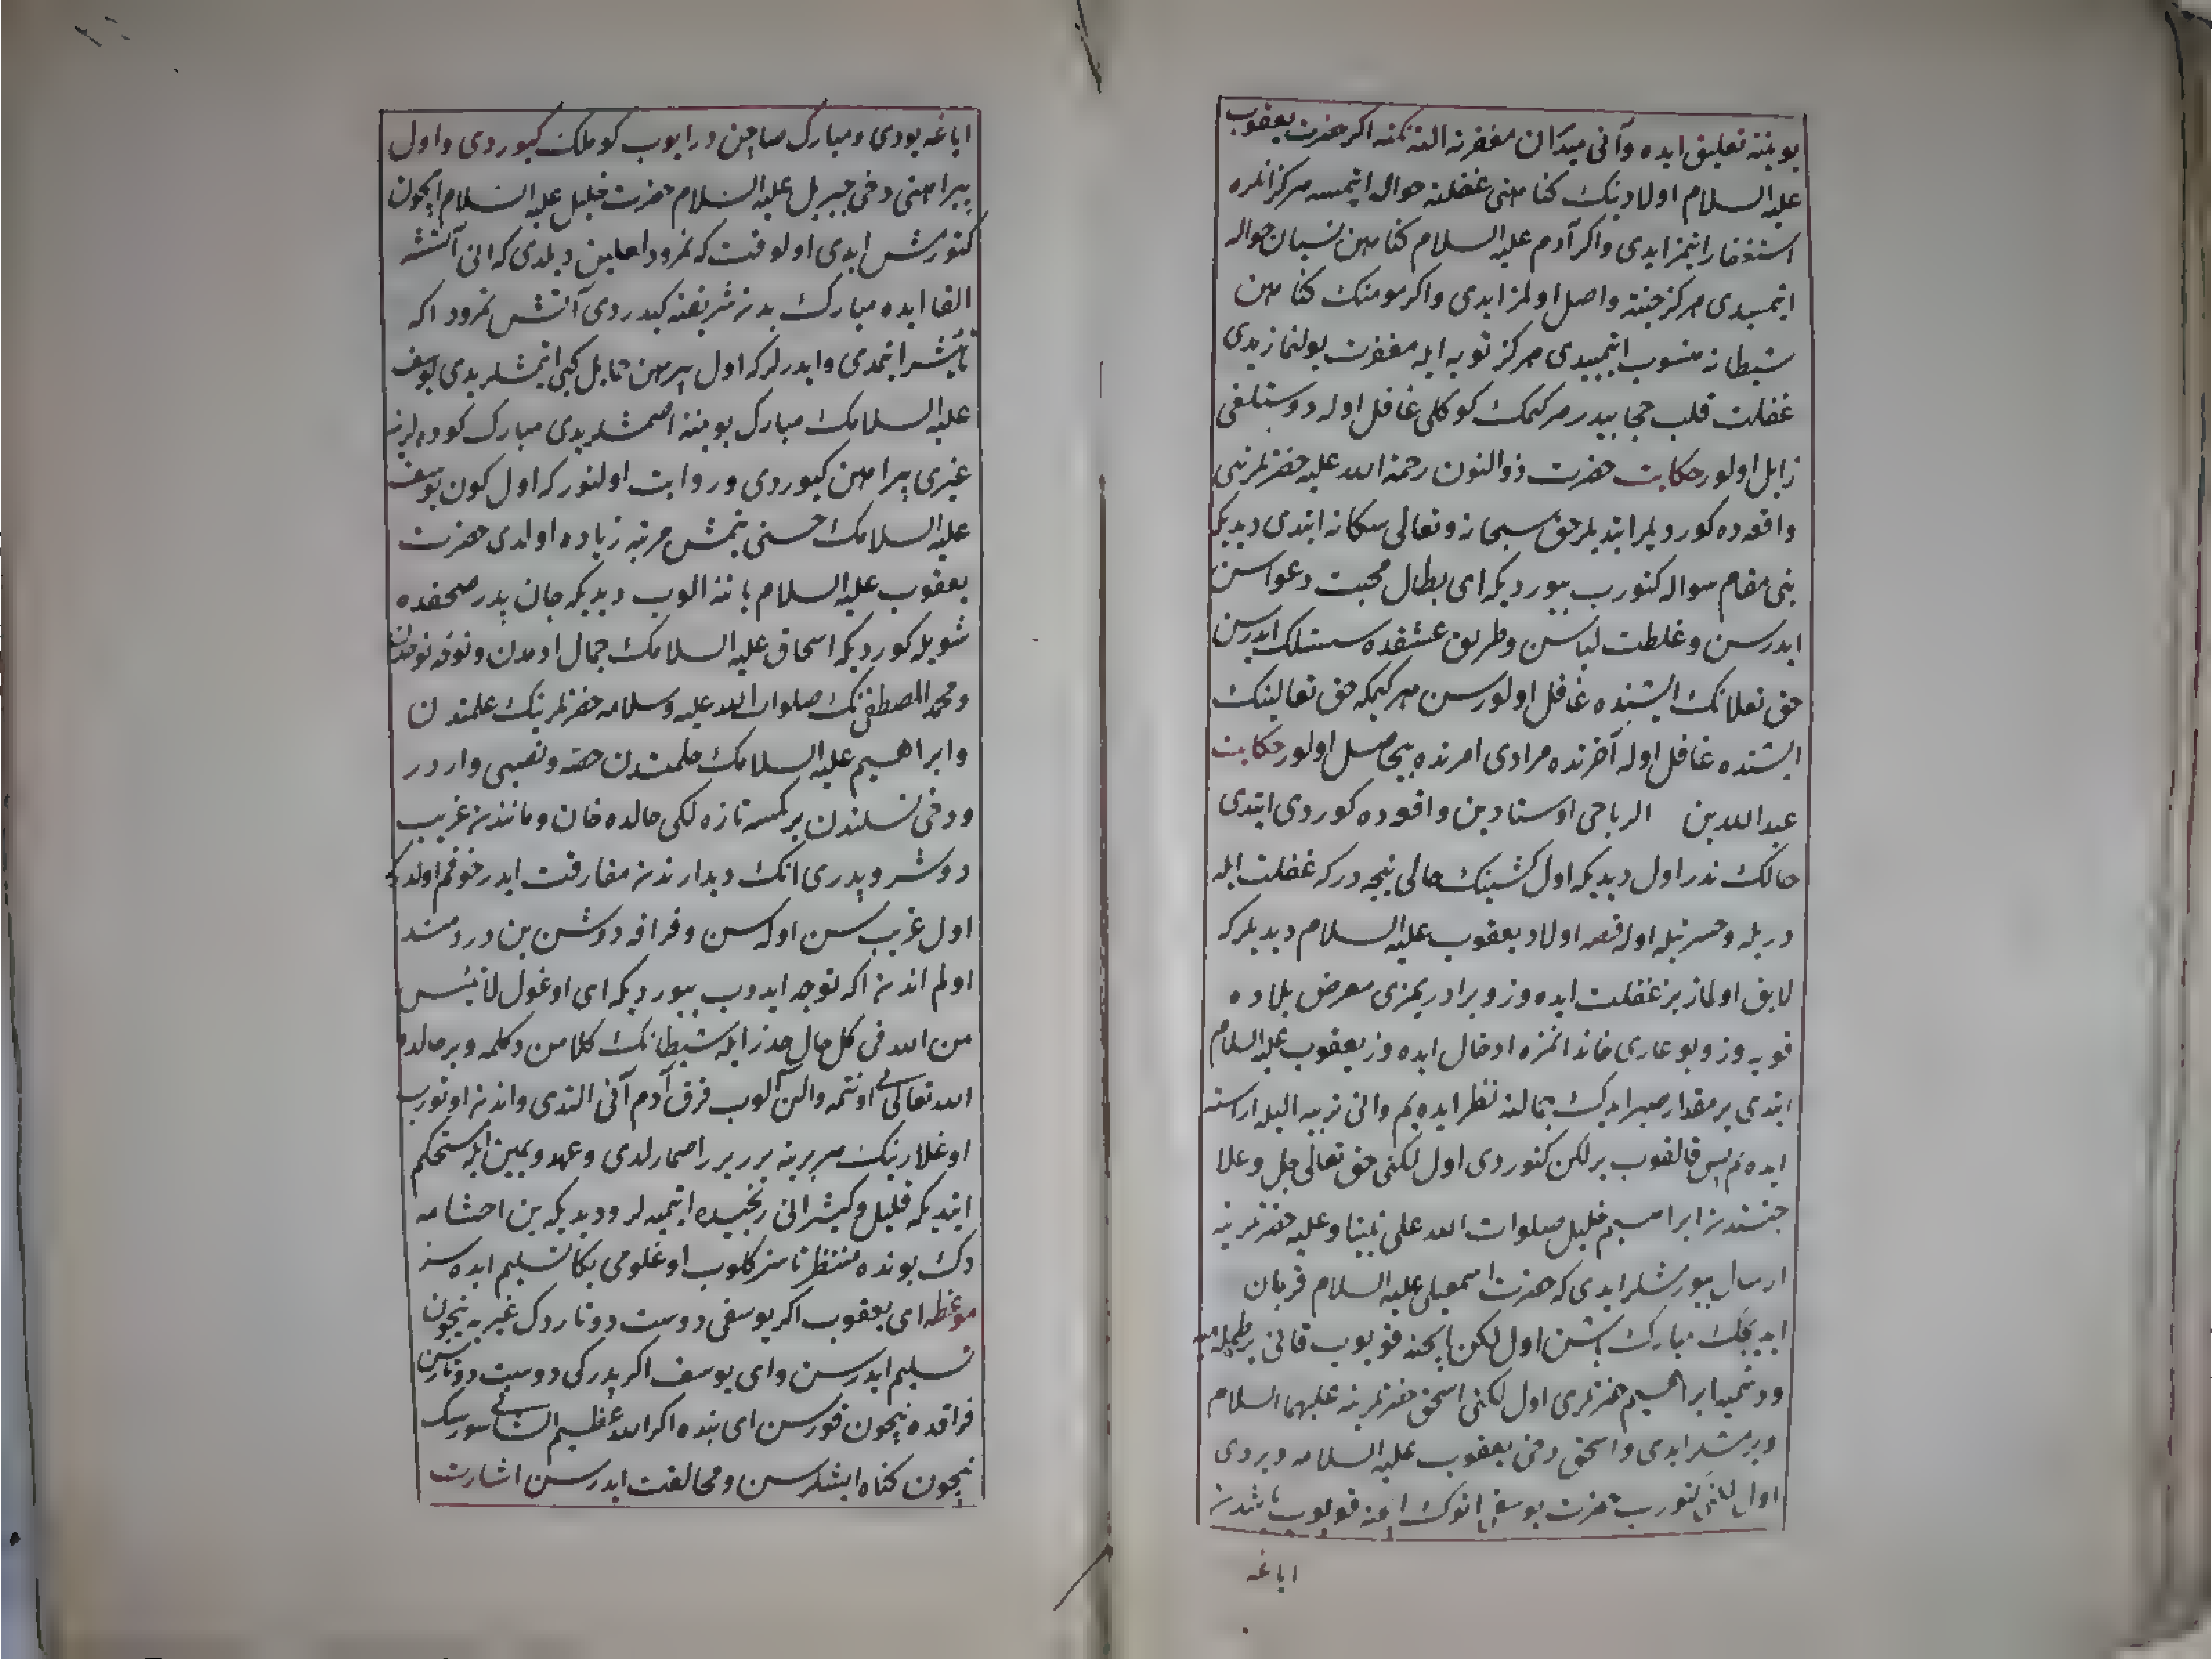 بوینته تعلیق ایده وآنی میدان مغفرته الته کمنه اکر حضرت یعقوب
علیه السلام اولادینک کناهنی غفلته حواله ایتمسه هرکز انلره
استغفار ایتمز ایدی واکر آدم علیه السلام کناهین نسیان حواله
ایتمسیدی هرکز جنته واصل اولمز ایدی واکر مومنک کناهین
شیطانه منسوب ایتمیدی هرکز توبه ایله مغفرت بولنماز یدی
غفلت قلب حجابیدر هرکمک کوکلی غافل اوله دوستلغی
زایل اولور حکایت حضرت ذوالنون رحمة الله علیه حضرتلرنی
واقعه ده کوردیلر ایتدیلر حق سبحانه وتعالی سکا نه ایتدی دیدیکه
بنی مقام سواله کتورب بیوردیکه ای بطال محبت دعواسن
ایدرسن وغلطت لباسن وطریق عشقده سستلک ایدرسن
حق تعلانک ایشنده غافل اولورسن هرکیمکه حق تعالینک
ایشنده غافل اوله آخرنده مرادی امرنده بیحاصل اولور حکایت
عبدالله بن الرباحی اوستادین واقعه ده کوردی ایتدی
حالک ندر اول دیدیکه اول کشینک حالی نیجه درکه غفلت ایله
دریله وحسرتیله اوله قصه اولاد یعقوب علیه السلام دیدیلرکه
لایق اولماز بز غفلت ایده وز وبرادریمزی معرض بلاده
قویه وز وبو عاری خاندانمزه ادخال ایده وز یعقوب علیه السلام
ایتدی بر مقدار صبر ایدک جمالنه نظر ایده یم وانی تربیه ایله اراسته
ایده یم پس قالقوب بر لکن کتوردی اول لکنی حق تعالی جل وعلا
جنتندن ابراهیم خلیل صلوات الله علی نبینا وعلیه حضرتلرینه
ارسال بیورمشلر ایدی که حضرت اسمعیل علیه السلام قربان
ایدیجک مبارک باشن اول لکن ایچنه قویوب قانی بر طمله
ودخی ابراهیم حضرتلری اول لکنی اسحق حضرتلرینه علیهما السلام
ویرمشلر ایدی واسحق دخی یعقوب علیه السلامه ویردی
اول لکنی کتورب حضرت یوسفی انوک ایچنه قویوب باشندن
ایاغه
ایاغه یودی ومبارک صاچین درایوب کوملک کیوردی واول
پیراهنی دخی جبریل علیه السلام حضرت خلیل علیه السلام ایچون
کتورمش ایدی اول وقت که نمرود لعین دیلدی که انی آتشه
القا ایده مبارک بدن شریفنه کیدردی آتش نمرود اکه
تأثیر ایتمدی وایدرلرکه اول پیرهن حمایل کبی ایتمشلریدی یوسف
علیه السلامک مبارک بویننه اصمشلریدی مبارک کوده لرنه
غیری پیراهن کیوردی وروایت اولنور که اول کون یوسف
علیه السلامک حسنی یتمش مرتبه زیاده اولدی حضرت
یعقوب علیه السلام یاننه الوب دیدیکه جان پدر صحفده
شویله کوردیکه اسحاق علیه السلامک جمال ادمدن وقوة نوحدن
ومحمد المصطفی نک صلوات الله علیه وسلامه حضرتلرینک علمندن
وابراهیم علیه السلامک حلمندن حصه ونصیبی واردر
ودخی نسلندن بر کمسه تازه لکی حالده خان وماننذن غریب
دوشر وپدری انک دیدارندن مفارقت ایدر خوفم اولدرکه
اول غریب سن اوله سن وفراقه دوشن بن دردمند
اولم اندن اکه توجه ایدوب بیوردیکه ای اوغول لا تیئس
من الله فی کل حال حذر ایله شیطانک کلامن دکلمه وبر حالده
الله تعالی اونتمه والن آلوب فرق آدم آنی التدی واندن اوتورب
اوغلارینک هر برینه برر برر اصمارلدی وعهد ویمین ایله مستحکم
ایتدیکه قلیل وکثیر انی رنجیده ایتمیه لر ودیدیکه بن احشامه
دک بونده منتظر تا سز کلوب اوغلومی بکا تسلیم ایده سز
موعظه ای یعقوب اکر یوسفی دوست دوتاردک غیریه نیچون
تسلیم ایدرسن وای یوسف اکر پدرکی دوست دوتارسن
فراقده نیچون قورسن ای بنده اکر الله عظیم الشانی سورسک
نیچون کناه ایشلرسن ومخالفت ایدرسن اشارت